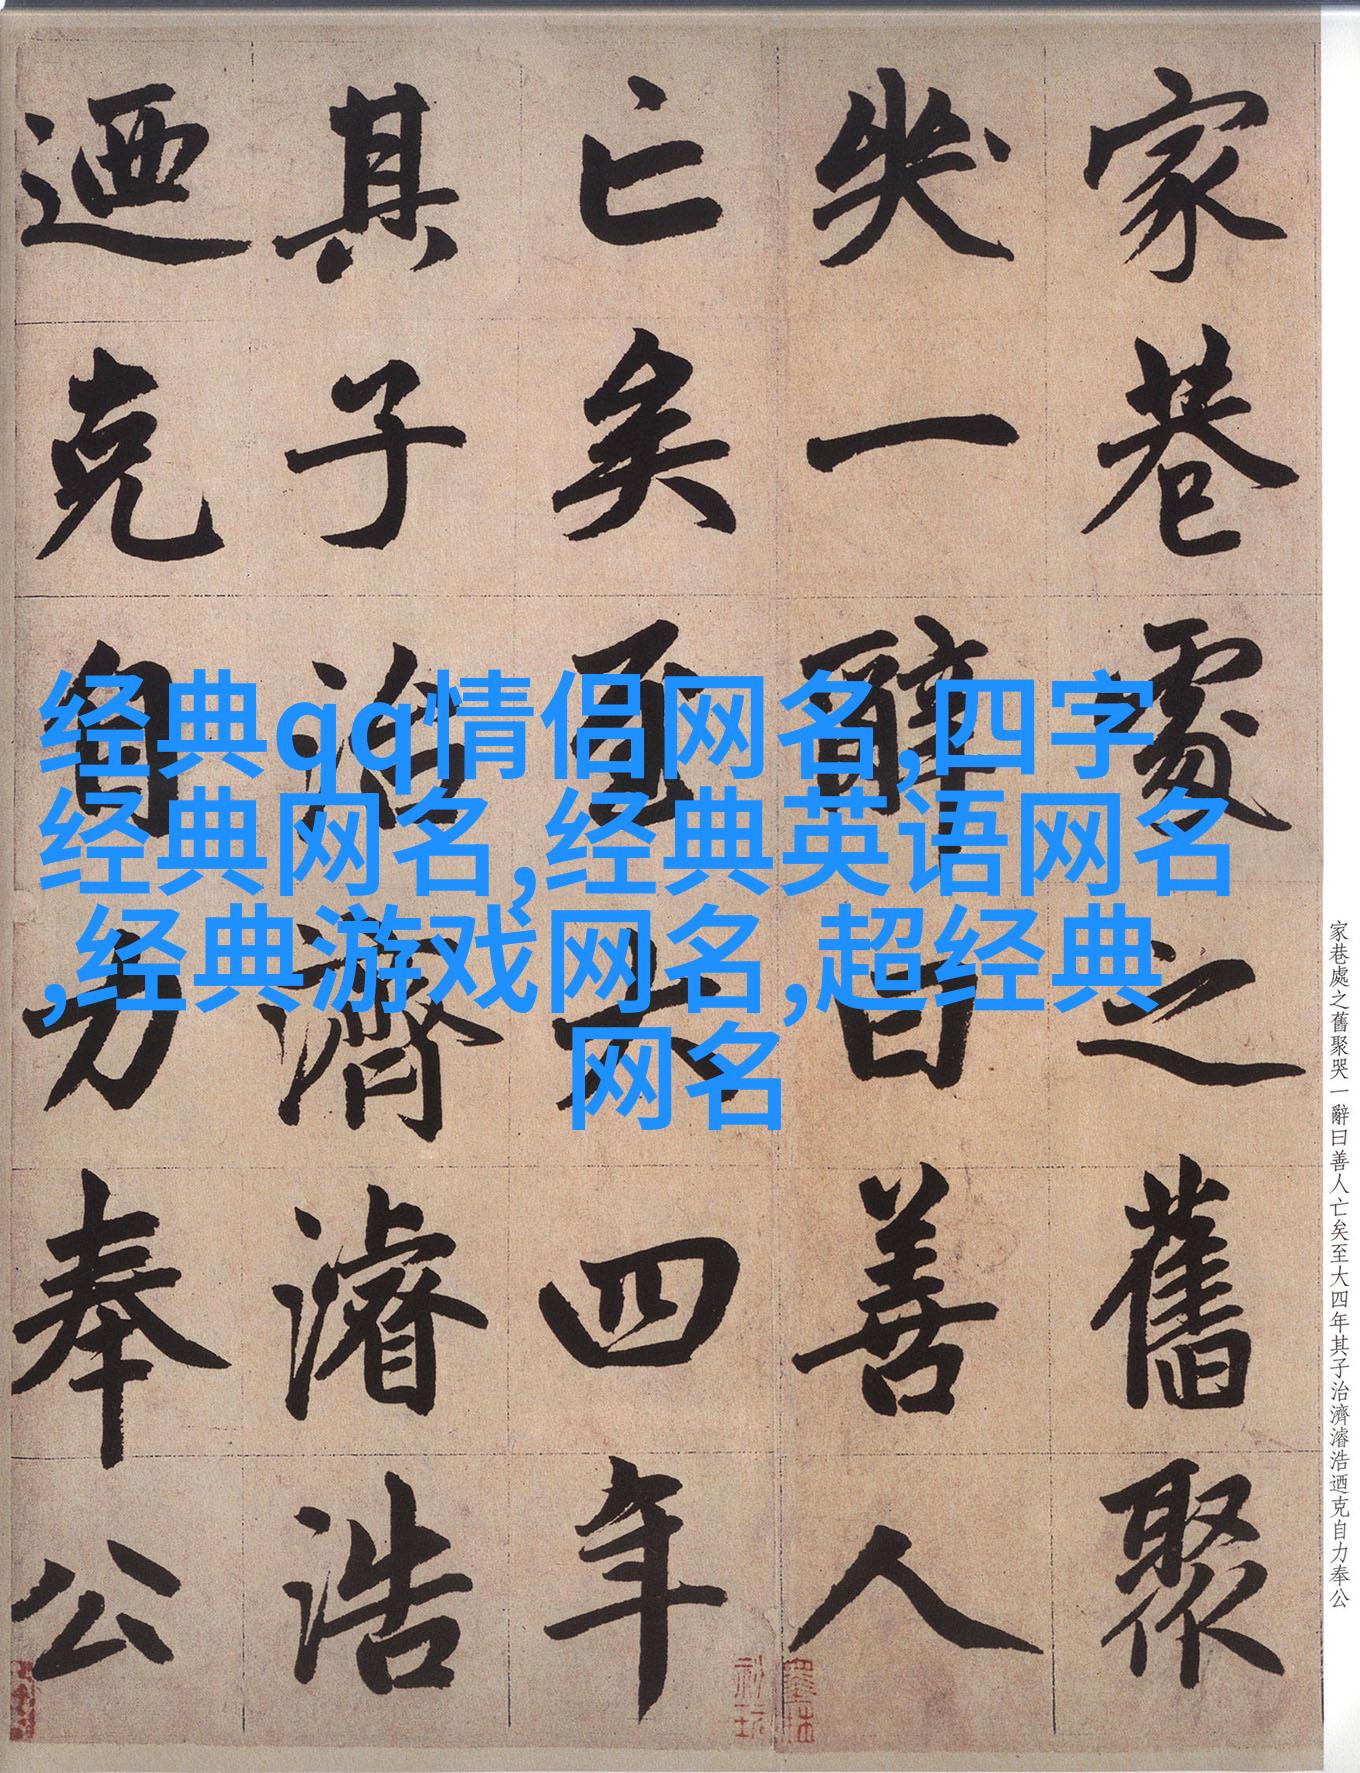 家巷處之舊聚
哭一辭曰善人
亡矣至大四年
其子治濟濬浩
迺克自力奉公
经典qq情侣网名,四字
经典网名,经典英语网名
,经典游戏网名,超经典
网名
家巷處之舊聚哭一辭曰善人亡矣至大四年其子治濟濬浩迺克自力奉公
墨林
秘玩